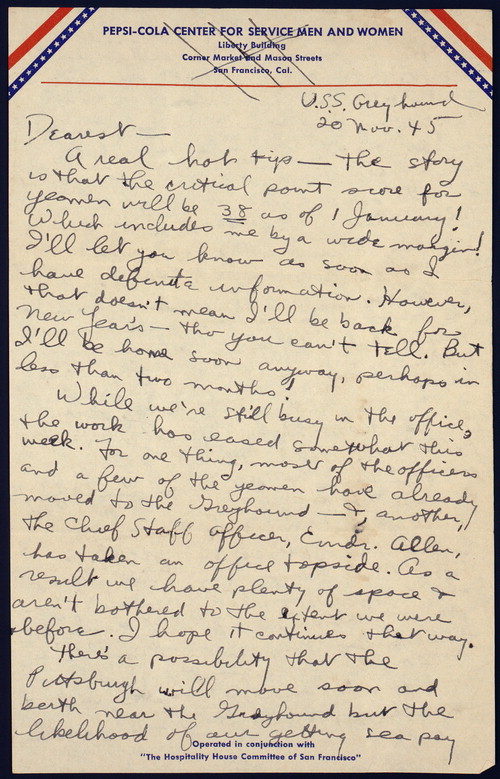 PEPSI-COLA CENTER FOR SERVICE MEN AND WOMEN
Liberty Building
Corner Market and Mason Streets
San Francisco, Cal.
U.S.S. Greyhound
20 Nov. 45
Dearest—
A real hot tip — the story
is that the critical point score for
yeomen will be 38 as of 1 January!
Which includes me by a wide margin!
I'll let you know as soon as I
have definite information. However,
that doesn't mean I'll be back for
New Year's — tho you can't tell. But
I'll be home soon anyway, perhaps in
less than two months!
While we're still busy in the office,
the work has eased somewhat this
week. For one thing, most of the officers
and a few of the yeomen have already
moved to the Greyhound — I, another,
the Chief Staff Officer, Cmdr. Allen,
has taken an office topside. As a
result we have plenty of space &
aren't bothered to the extent we were
before. I hope it continues that way.
There's a possibility that the
Pittsburgh will move soon and
berth near the Greyhound but the
likelihood of our getting sea pay
Operated in conjunction with
"The Hospitality House Committee of San Francisco"